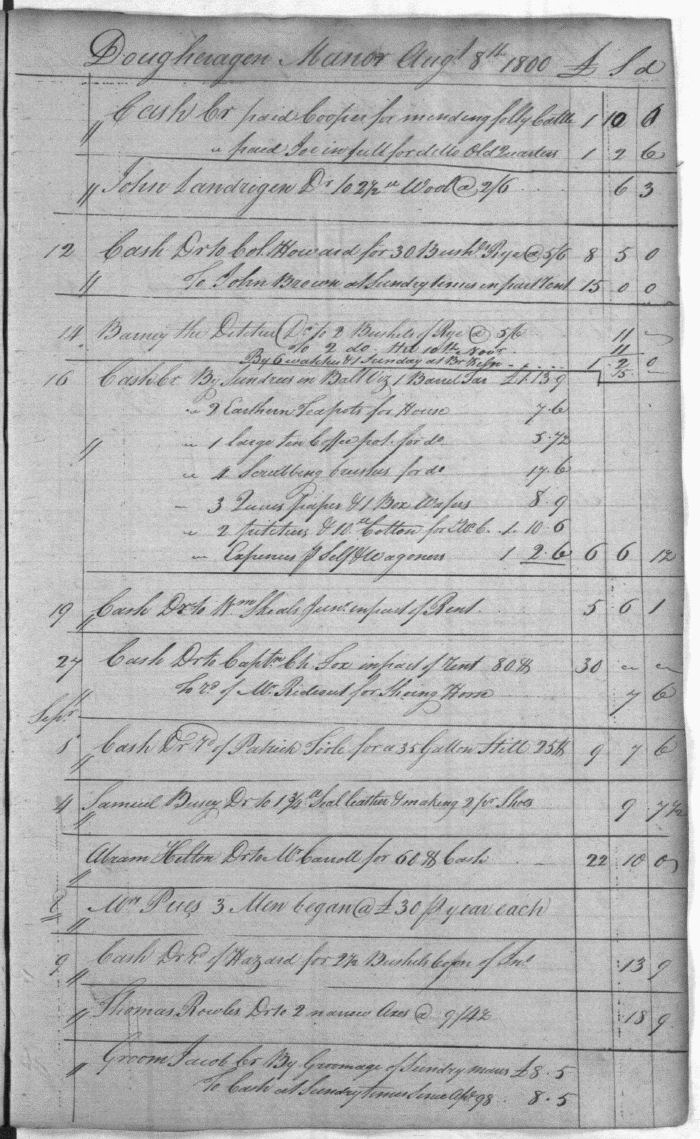 Dougheragen Manor Augt 8th 1800 £ S d
" Cash Cr paid Cooper for mending folly Cattle 1 10 0
" paid Joe in full for ditto Old Quarters 1 2 6
" John Landregen Dr to 2½ lb Wool @ 2/6 6 3
12 Cash Dr to Col. Howard for 30 Bushs Rye @ 5/6 8 5 0
" To John Brown at Sundry times in part Rent 15 0 0
14 Barney the Ditcher Dr to 2 Bushels of Rye @ 5/6 11 "
To 2 do 11
By 6 watches & 1 Sunday at 1 2 0
15
16 Cash Cr By Sundries in Balt Viz 1 Barrel Tar £1 13 9
" 2 Earthern Teapots for House 7 6
" " 1 large tin Coffee pot for do 5 7½
" 4 Scrubbing brushes for do 17 6
" 3 Quires paper & 1 Box Wafers 8 9
" 2 pitchers & 10 lb Cotton for 1 10 6
" Expences p Self & Wagoners 1 2 6 6 6 1½
19 " Cash Dr to Wm Sheals Junr in part of Rent 5 6 1
27 Cash Dr to Captn Ch Fox in part of Rent 80 $ 30 " "
" To rd of Mr Rideout for Shoing Horse 7 6
Sepr
1 " Cash Dr rd of Patrick Toole for a 35 Gallon Still 25 $ 9 7 6
4 " Samuel Busey Dr to 1¾ lb Seal leather & making 2 pr Shoes 9 7½
" Abram Hilton Dr to Mr Carroll for 60 $ Cash 22 10 0
8 " Wm Pues 3 Men began @ £30 p year each
9 " Cash Dr rd of Hazard for 2½ Bushels of 13 9
" Thomas Rowles Dr to 2 narrow Axes @ 9/4½ 18 9
" Groom Jacob Cr By Groomage of Sundry mares £8 5
To Cash at Sundry times Since Apl 98 8 5